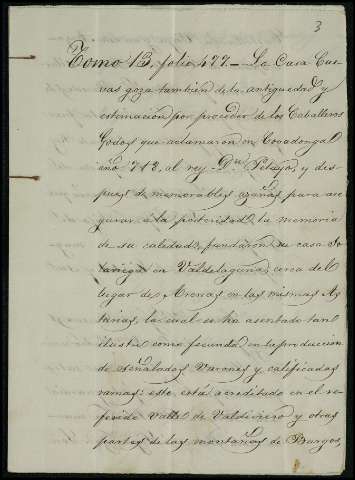 3
Tomo 13, folio 477.— La Casa Cue-
vas goza tambien de la antiguedad y
estimacion por proceder de los Caballeros
Godos que aclamaron en Covadonga el
año 718, al rey Dn Pelayo, y des-
pues de memorables azañas para ase-
gurar á la posteridad, la memoria
de su calidad, fundaron su casa So-
lariega en Valdelaguna, cerca del
lugar de Arenas en las mismas As-
turias, la cual se ha asentado tan
ilustre como fecunda en la produccion
de señalados Varones y calificadas
ramas: este está acreditado en el re-
feride Valle de Valdivieso y otras
partes de las montañas de Burgos,